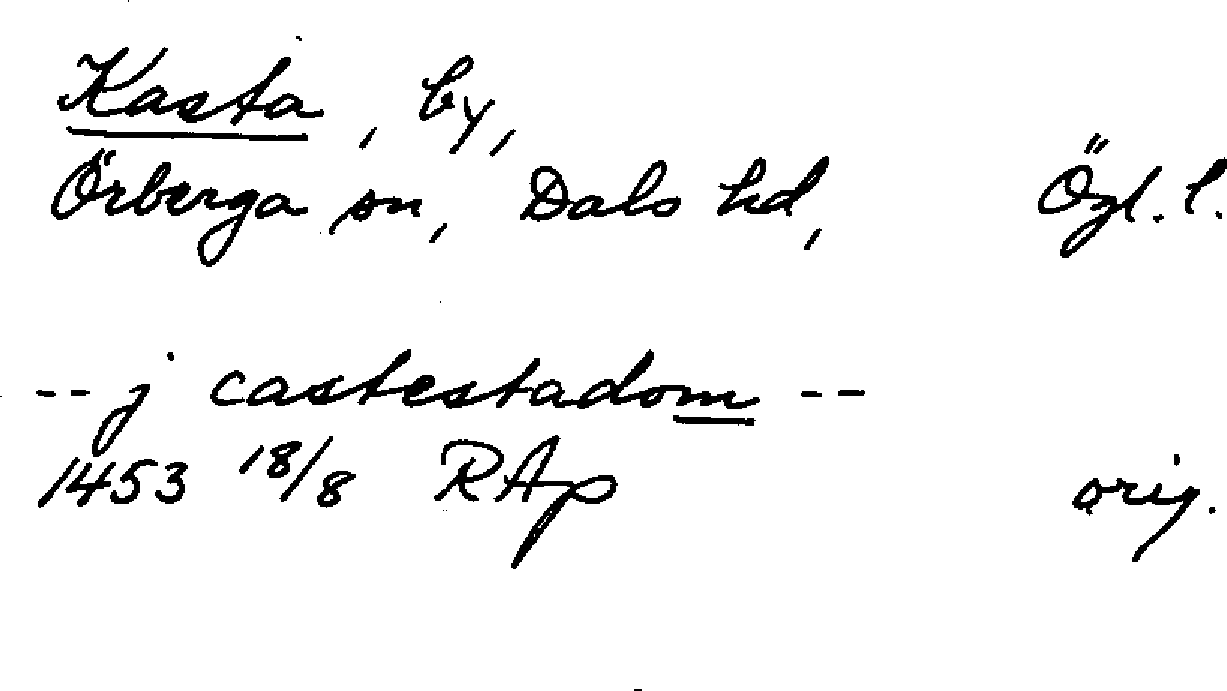 Kasta, by,
Örberga sn, Dals hd, Ögl. l.
-- j castestadom --
1453 18/8 RAp orig.